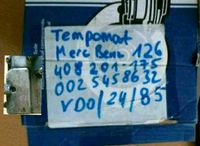 Tempomat
Merc Benz 126
408 201-175
002 545 8632
VDO/24/85